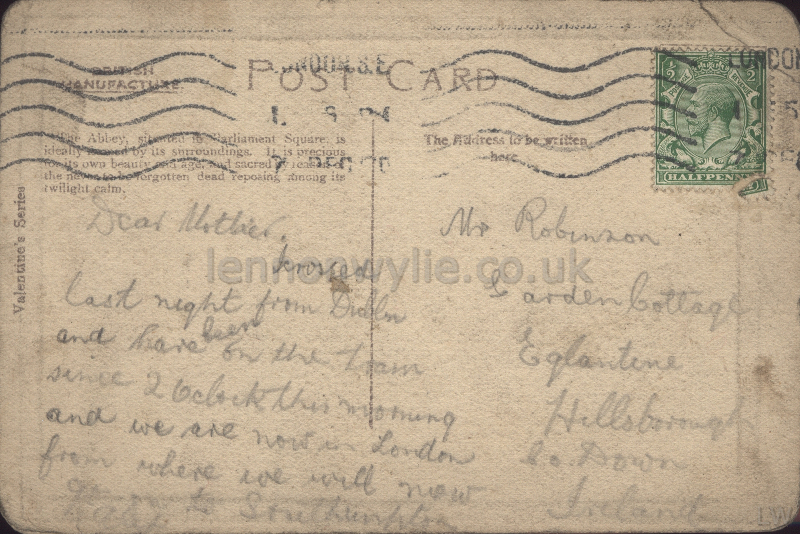 BRITISH
MANUFACTURE
POST CARD
LONDON.S.E.
LONDON
Abbey, situated in Parliament Square, is
by its surroundings. It is precious
for its own beauty and age, and sacred by reason of
the never to be forgotten dead reposing among its
twilight calm.
The Address to be written
here.
HALFPENNY
Valentine's Series
Dear Mother,
Crossed
last night from Dublin
and have been on the train
since 2 Oclock this morning
and we are now in London
from where we will now
to Southampton
Mr Robinson
Garden Cottage
Eglantine
Hillsborough
Co. Down
Ireland
lennonwylie.co.uk